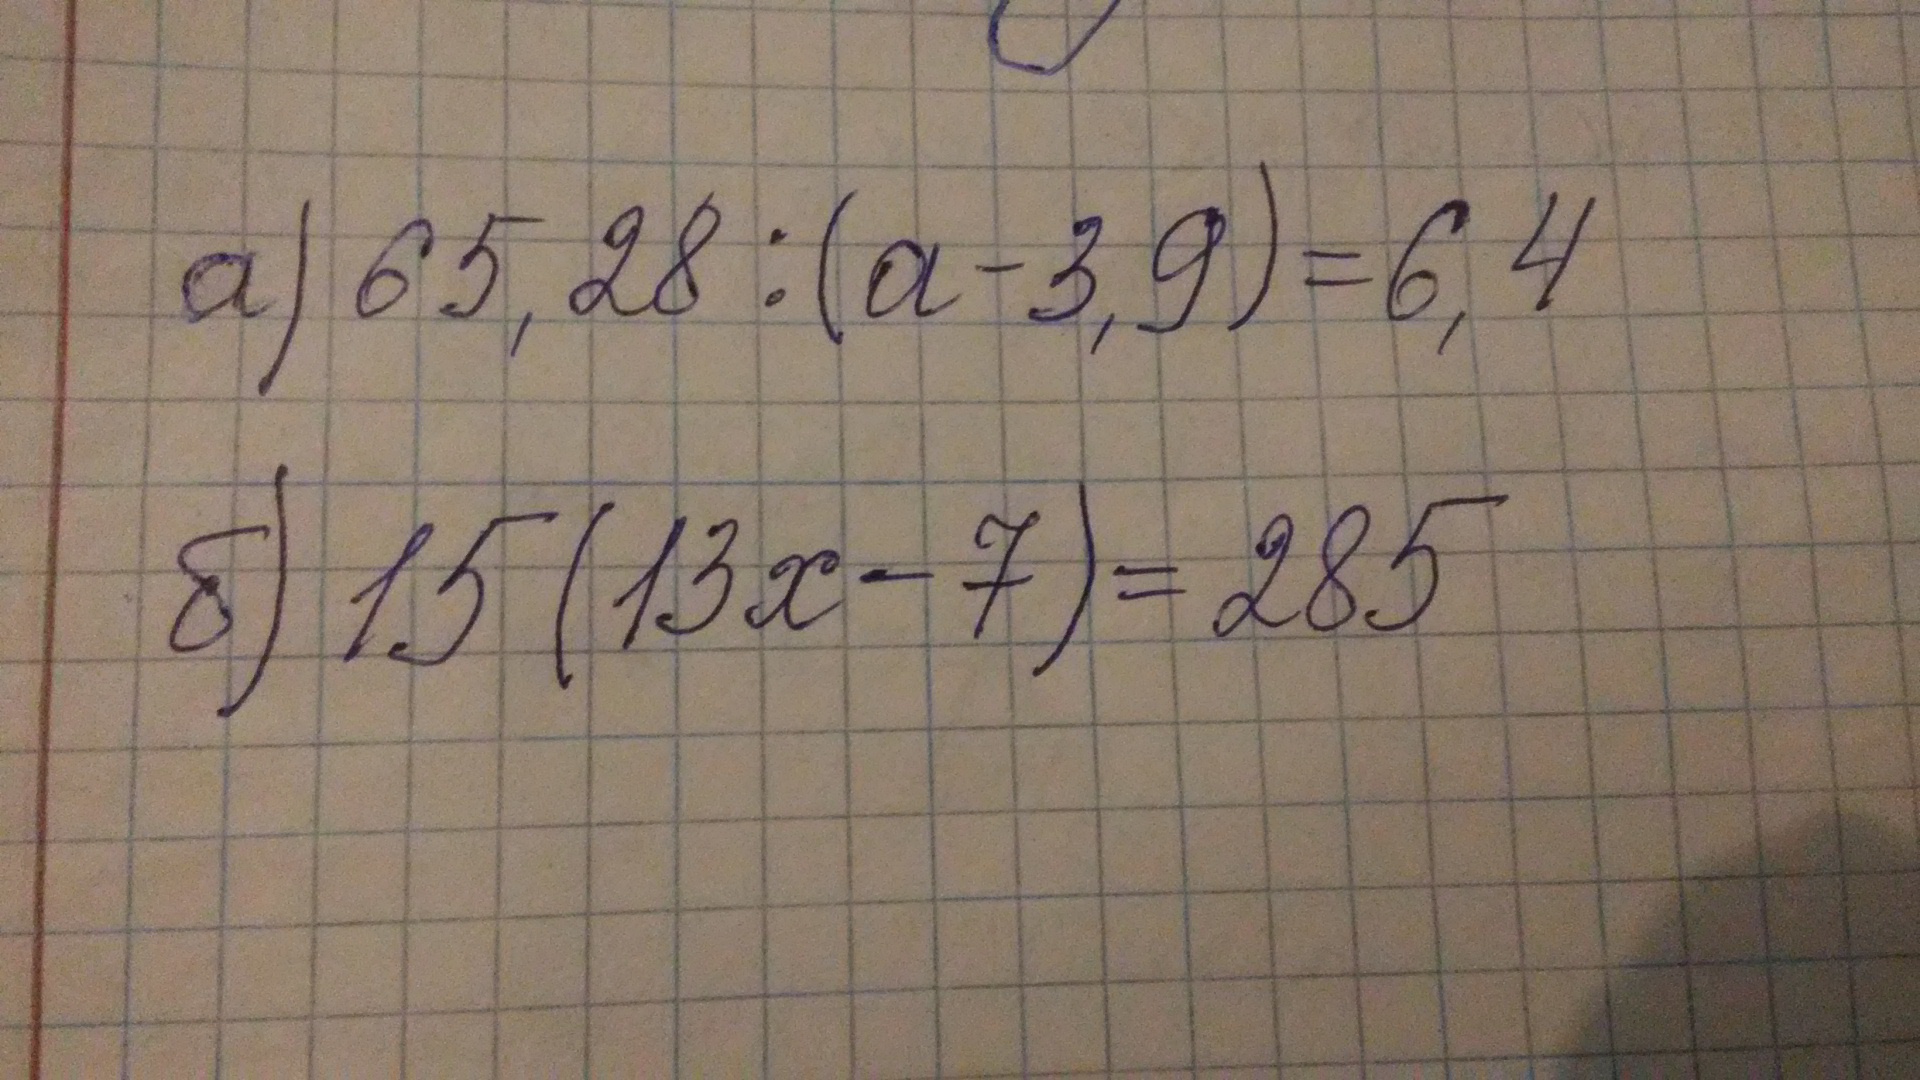 а) 65,28 : (а - 3,9) = 6,4
б) 15 (13х - 7) = 285